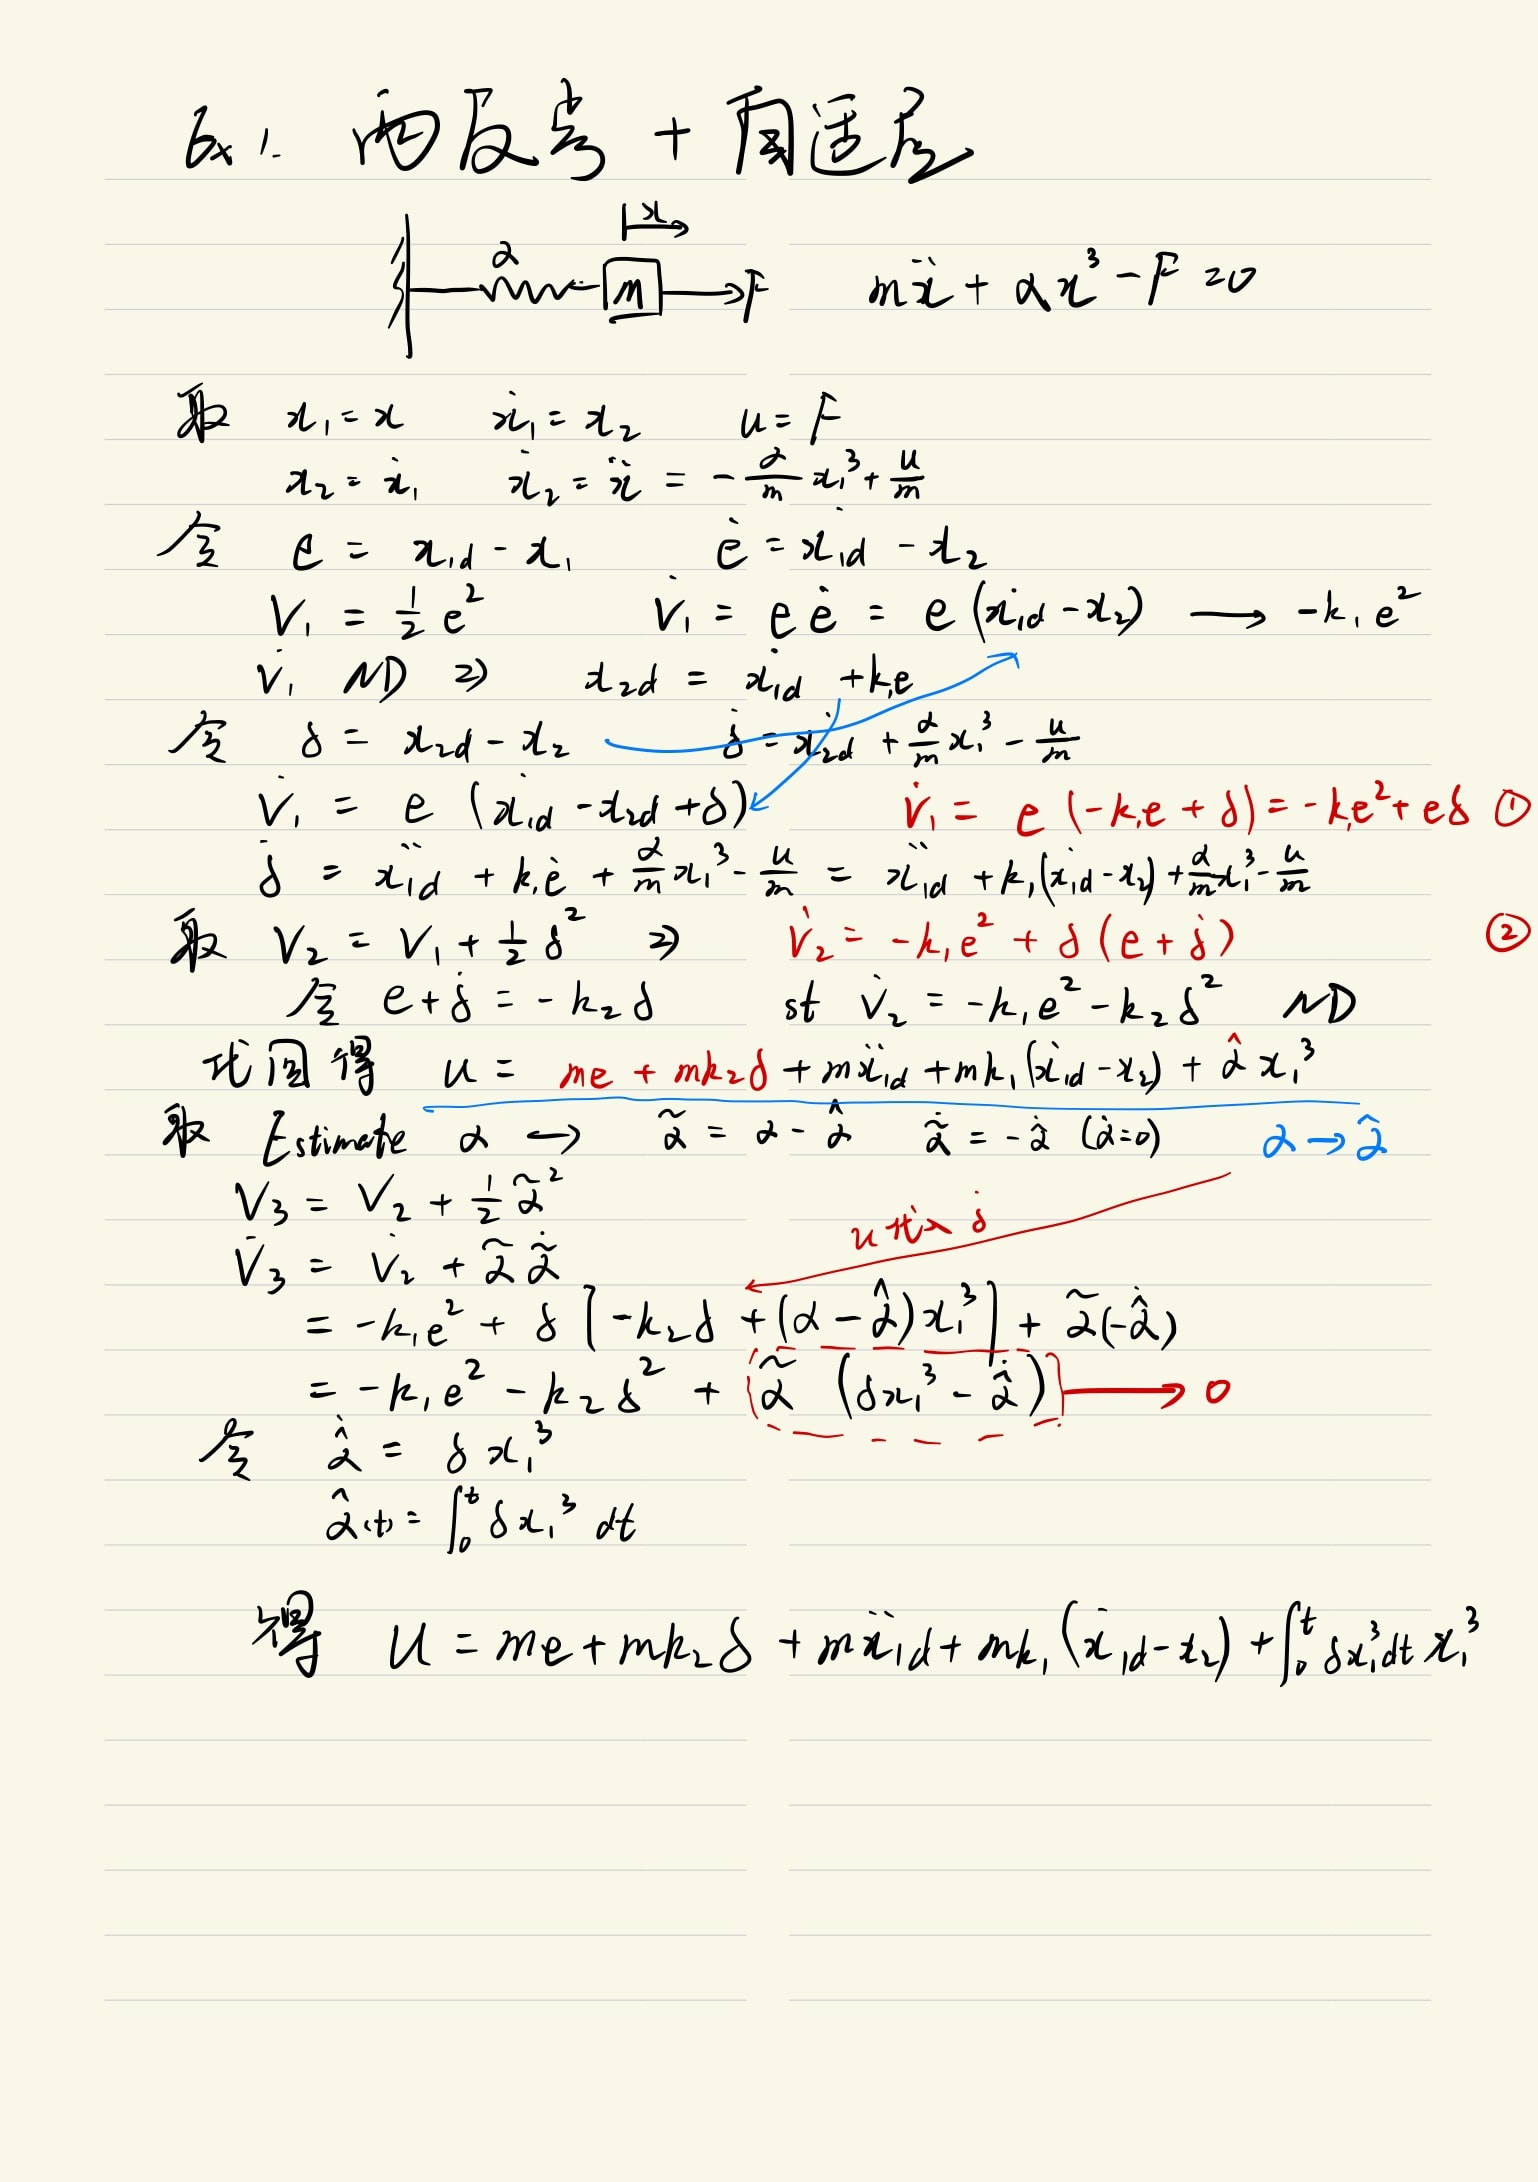 Ex 1. 两反步 + 自适应
x
α m F mẍ + αx³ - F = 0
取 x₁ = x ẋ₁ = x₂ u = F
x₂ = ẋ₁ ẋ₂ = ẍ = -α/m x₁³ + u/m
令 e = x₁d - x₁ ė = ẋ₁d - x₂
V₁ = 1/2 e² V̇₁ = e ė = e (ẋ₁d - x₂) → -k₁e²
V̇₁ ND ⇒ x₂d = ẋ₁d + k₁e
令 δ = x₂d - x₂ δ̇ = ẋ₂d + α/m x₁³ - u/m
V̇₁ = e (ẋ₁d - x₂d + δ) V̇₁ = e (-k₁e + δ) = -k₁e² + eδ ①
δ̇ = ẍ₁d + k₁ė + α/m x₁³ - u/m = ẍ₁d + k₁(ẋ₁d - x₂) + α/m x₁³ - u/m
取 V₂ = V₁ + 1/2 δ² ⇒ V̇₂ = -k₁e² + δ (e + δ̇) ②
令 e + δ̇ = -k₂δ st V̇₂ = -k₁e² - k₂δ² ND
代回得 u = me + mk₂δ + mẍ₁d + mk₁(ẋ₁d - x₂) + α̂ x₁³
取 Estimate α → α̃ = α - α̂ α̃̇ = -α̂̇ (α̇=0) α → α̂
V₃ = V₂ + 1/2 α̃²
u 代入 δ̇
V̇₃ = V̇₂ + α̃ α̃̇
= -k₁e² + δ [-k₂δ + (α - α̂)x₁³] + α̃(-α̂̇)
= -k₁e² - k₂δ² + α̃ (δx₁³ - α̂̇) → 0
令 α̂̇ = δ x₁³
α̂(t) = ∫₀ᵗ δx₁³ dt
得 u = me + mk₂δ + mẍ₁d + mk₁(ẋ₁d - x₂) + ∫₀ᵗ δx₁³dt x₁³